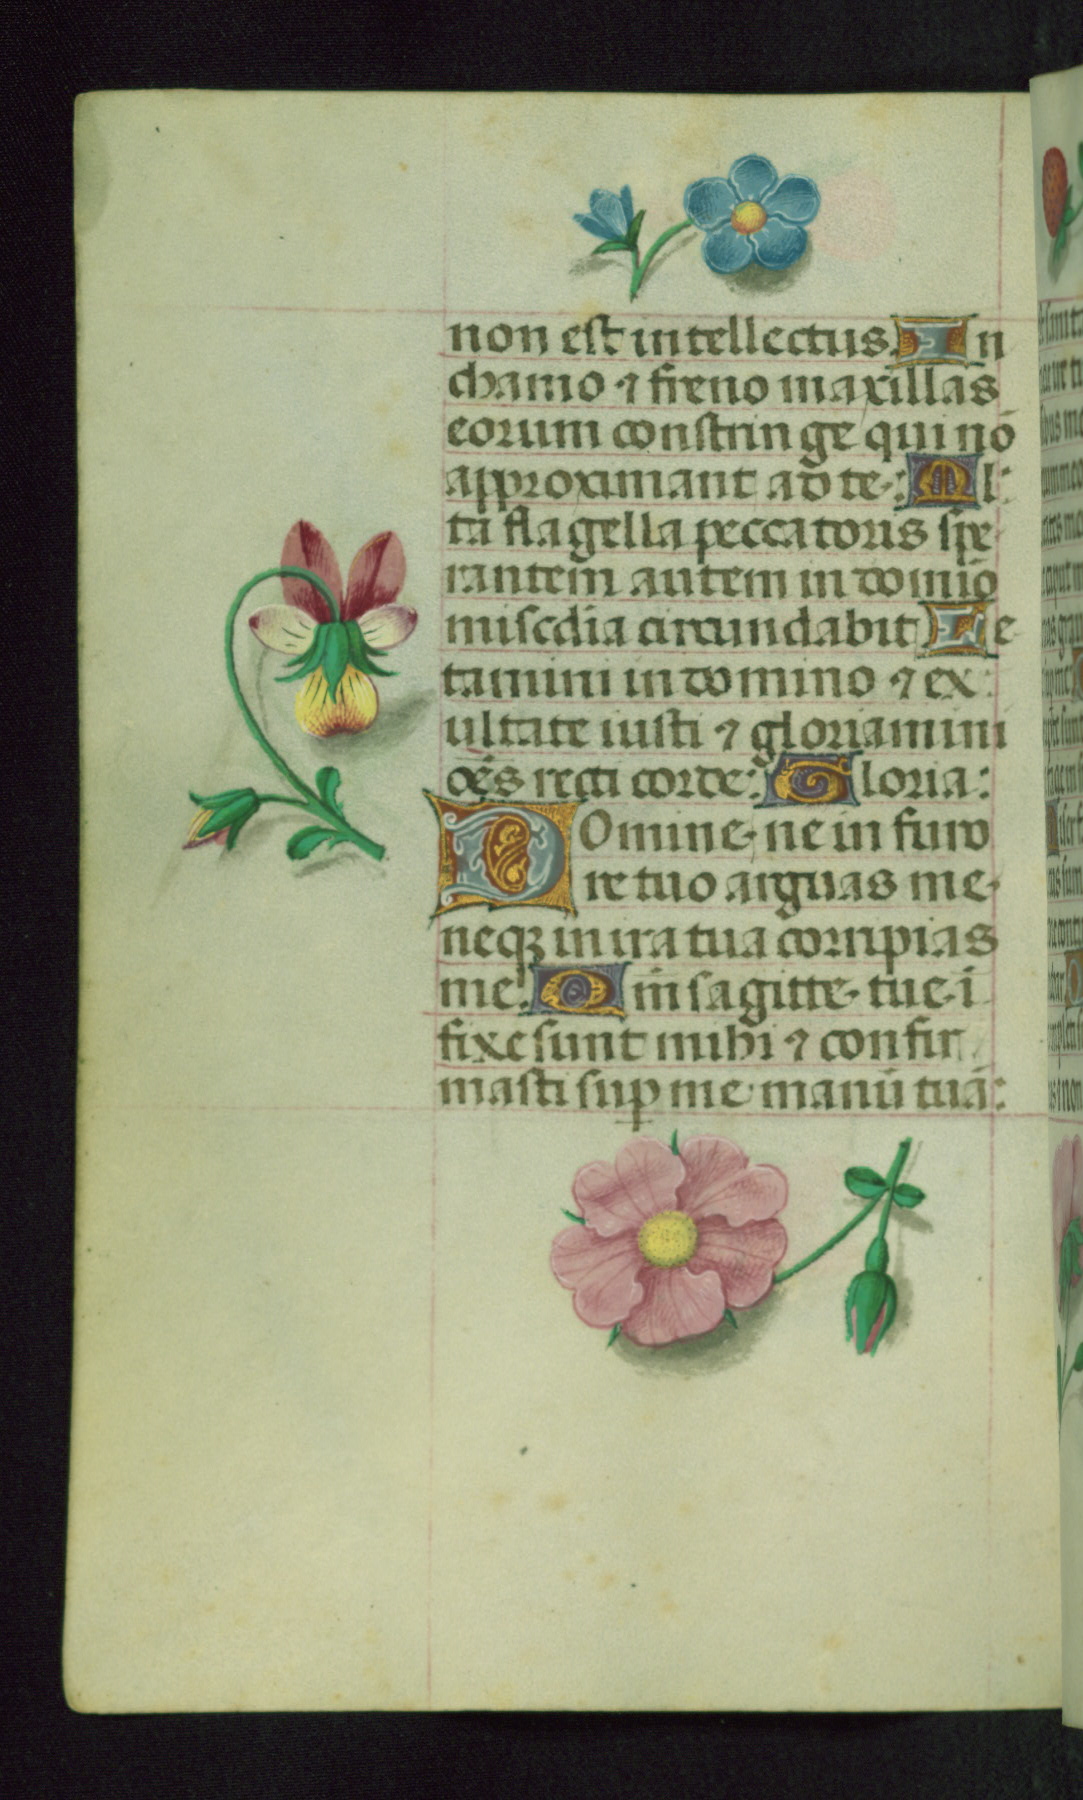 non est intellectus. In
chamo ⁊ freno maxillas
eorum constringe qui nō
approximant ad te: Ml
ta flagella peccatoris spe
rantem autem in domio
miscdia circundabit Le
tamini in domino ⁊ ex
ultate iusti ⁊ gloriamini
oēs recti corde: Gloria:
DOmine ne in furo
re tuo arguas me
neqꝫ in ira tua corripias
me: Qm̄ sagitte tue ī
fixe sunt mihi ⁊ confir
masti suꝑ me manū tuā: